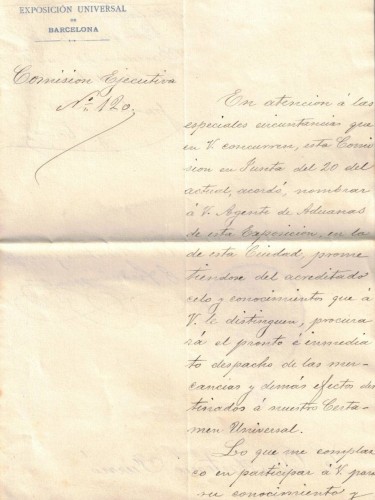 EXPOSICIÓN UNIVERSAL
DE
BARCELONA
Comision Ejecutiva
Nº 120.
En atencion á las
especiales circunstancias que
en V. concurren, esta Comi
sion en Junta del 20 del
actual, acordó, nombrar
á V. Agente de Aduanas
de esta Exposicion, en la
de esta Ciudad, prome
tiendose del acreditado
celo y conocimientos que á
V. le distinguen, procura
rá el pronto é inmedia
to despacho de las mer-
cancias y demás efectos des
tinados á nuestro Certa-
men Universal.
Lo que me complaz
co en participar á V. para
su conocimiento y